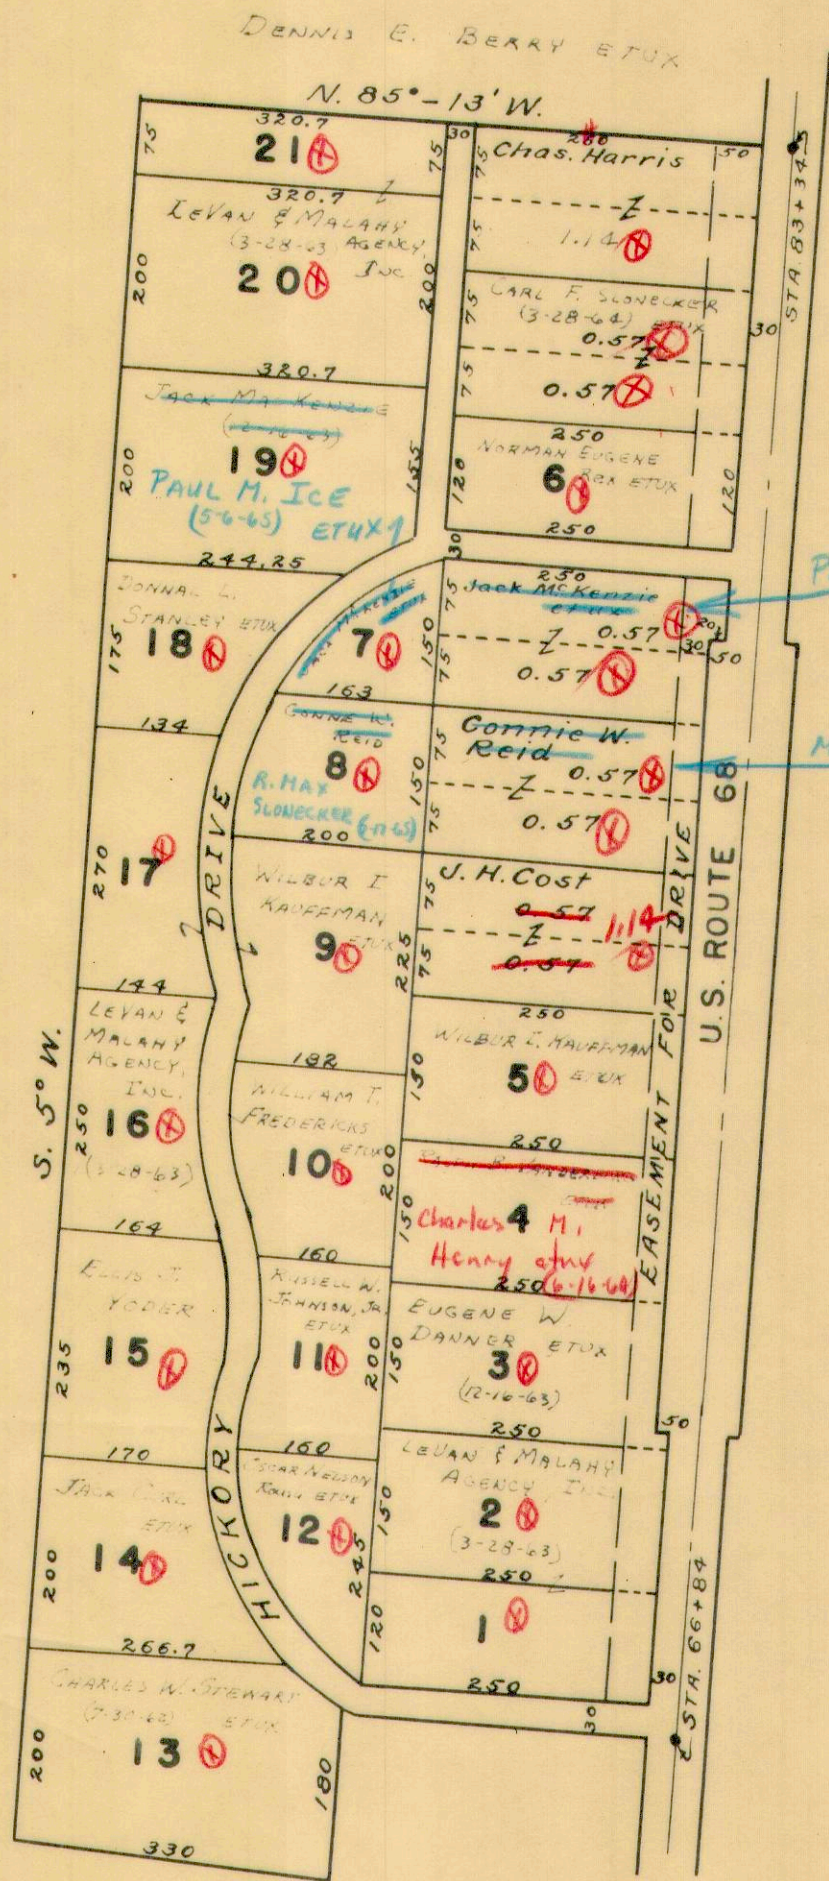 DENNIS E. BERRY ETUX
N. 85°-13' W.
320.7
75
21
75
30
320.7
LEVAN & MALAHY
(3-28-63) AGENCY,
INC
200
20
200
320.7
JACK MACKENZIE
(12-16-63)
200
19
155
PAUL M. ICE
(5-6-65) ETUX
244.25
DONNAL L.
STANLEY ETUX
175
18
134
270
17
144
LEVAN &
MALAHY
AGENCY,
INC.
250
16
164
ELLIS J.
YODER
235
15
170
JACK
ETUX
200
14
266.7
CHARLES W. STEWART
(7-30-62) ETUX
200
13
180
330
S. 5° W.
HICKORY DRIVE
250
50
75
Chas. Harris
75
1.14
CARL F. SLONECKER
(3-28-64) ETUX
75
0.57
75
0.57
250
NORMAN EUGENE
REX ETUX
120
6
120
250
30
30
STA. 83+34.5
MCKENZIE
ETUX
7
150
163
250
Jack McKenzie
etux
75
0.57
20
30
50
75
0.57
P
CONNIE W.
REID
8
150
R. MAX
SLONECKER (6-17-65)
200
Connie W.
Reid
75
0.57
75
0.57
M
WILBUR I
KAUFFMAN
ETUX
9
225
182
J. H. Cost
75
0.57
1.14
75
0.57
250
WILBUR I. KAUFFMAN
ETUX
150
5
250
WILLIAM T.
FREDERICKS
ETUX
10
200
160
150
Charles 4 M.
Henry etux
250 (6-16-64)
RUSSELL W.
JOHNSON, JR.
ETUX
11
200
160
EUGENE W.
DANNER ETUX
150
3
(12-16-63)
250
OSCAR NELSON
ETUX
12
245
LEVAN & MALAHY
AGENCY, INC.
150
2
(3-28-63)
250
120
1
250
30
30
50
EASEMENT FOR DRIVE
U.S. ROUTE 68
STA. 66+84